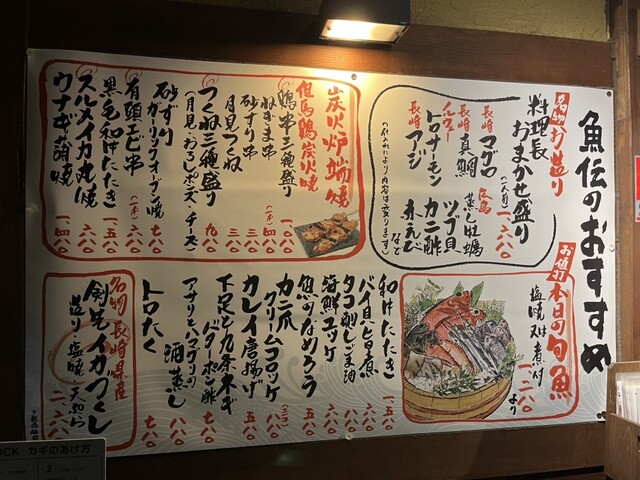 魚伝のおすすめ
名物お造り
料理長
おまかせ盛り
(一人前)
一・六八〇
長崎 マグロ
長崎 真鯛
トロサーモン
長崎 アジ
広島 蒸し牡蠣
ツブ貝
カニ酢
赤えび
など
(仕入れにより内容は変ります)
お値打
本日の旬魚
塩焼 又は 煮付
一・二八〇
より
炭火炉端焼
但馬鶏炭火焼
鶏串三種盛り
一・〇八〇
ねぎま串
(一本)
四八〇
砂ずり串
三八〇
月見つくね
三八〇
つくね三種盛り
九八〇
(月見・おろしポンズ・チーズ)
砂ずり
ガーリックオーブン焼
七八〇
有頭エビ串
(一本)
六八〇
黒毛和牛たたき
一・五八〇
スルメイカ丸焼
一・一八〇
ウナギ蒲焼
一・四八〇
和牛たたき
一・五八〇
バイ貝旨煮
六八〇
タコ刺しごま油
六八〇
海鮮ユッケ
八八〇
魚のなめろう
五八〇
カニ爪
クリームコロッケ
(二コ)
六八〇
カレイ唐揚げ
八八〇
下足と九条ネギ
バターポン酢
七八〇
アサリとハマグリの
酒蒸し
七八〇
トロたく
八八〇
名物 長崎県産
剣先イカづくし
造り 塩焼 天ぷら
二・六八〇
カギのあけ方